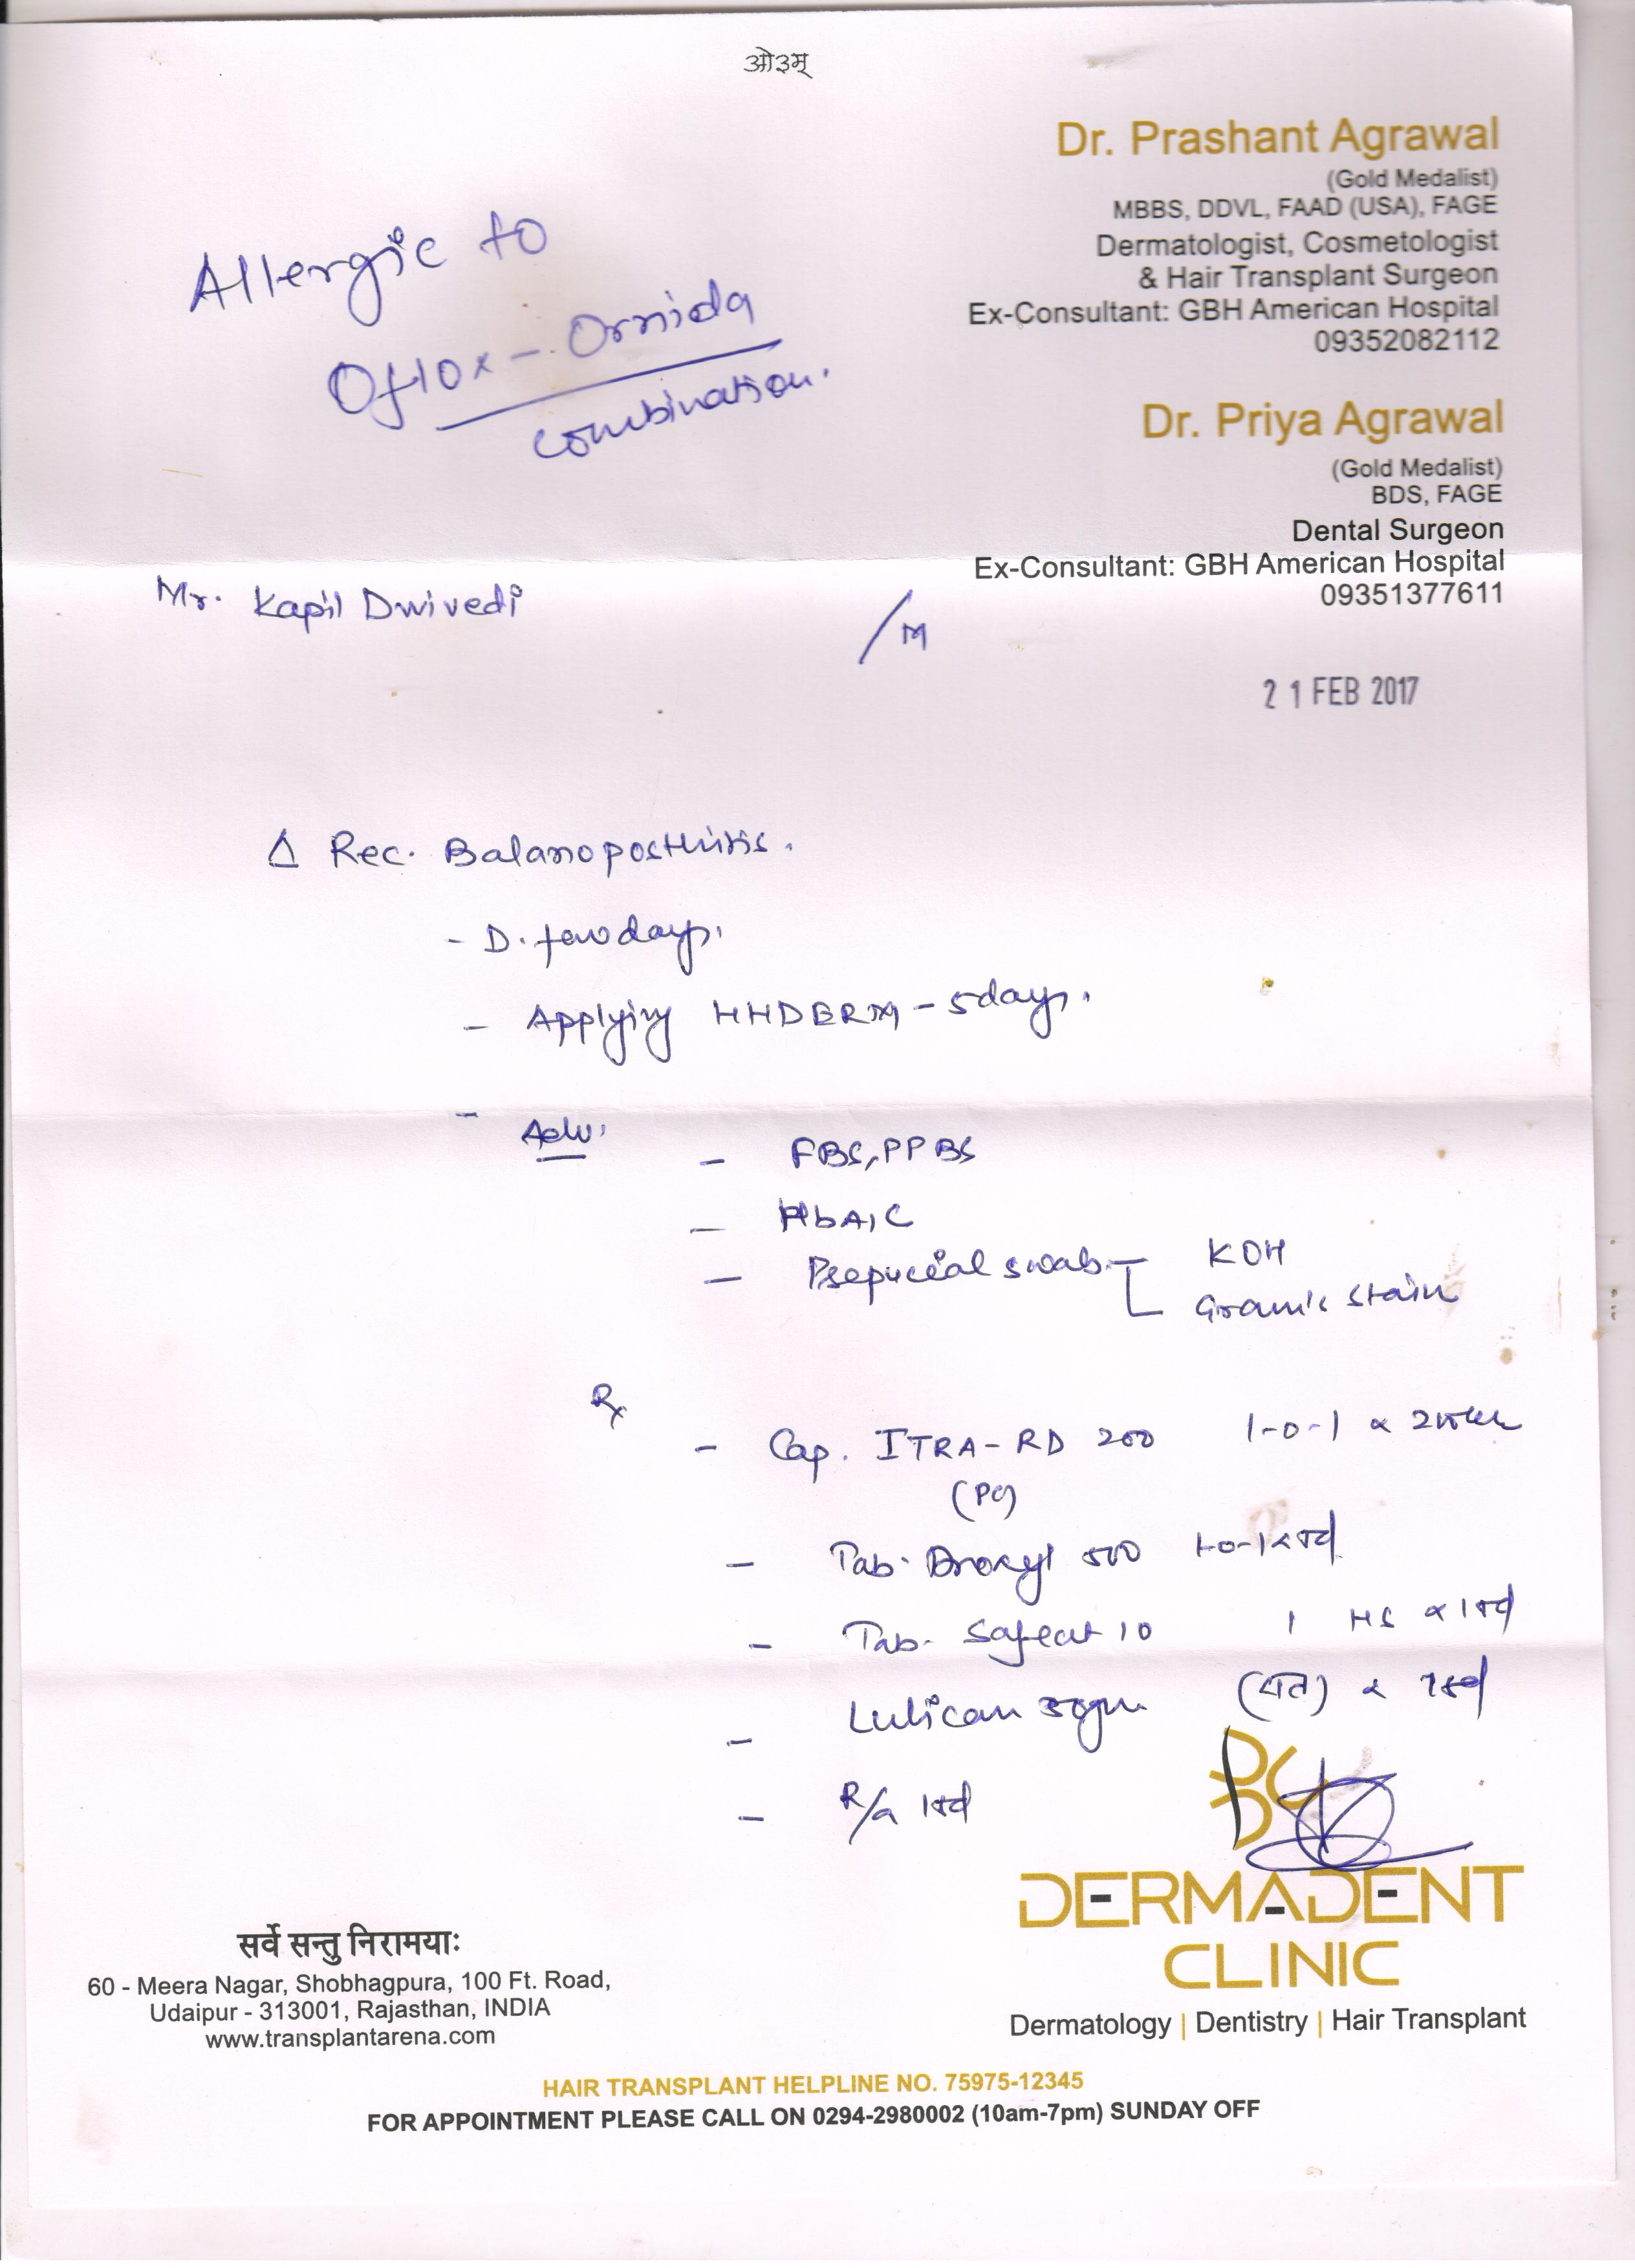 ओ३म्
Dr. Prashant Agrawal
(Gold Medalist)
MBBS, DDVL, FAAD (USA), FAGE
Dermatologist, Cosmetologist
& Hair Transplant Surgeon
Ex-Consultant: GBH American Hospital
09352082112
Allergic to
Oflox - Ornida
combination.
Dr. Priya Agrawal
(Gold Medalist)
BDS, FAGE
Dental Surgeon
Ex-Consultant: GBH American Hospital
09351377611
Mr. Kapil Dwivedi /M
21 FEB 2017
Δ Rec. Balanoposthitis.
- D. few days.
- Applying HHDERM - 5 days.
- Adv.
- FBS, PPBS
- HbA1C
- Prepucial swab KOH
Gram's stain
Rx
- Cap. ITRA-RD 200 1-0-1 x 2 week
- Tab. Droxyl 500 1-0-1 x
- Tab. 10 1 HS x
- Lulican gm x
- R/a
DERMADENT
CLINIC
Dermatology | Dentistry | Hair Transplant
सर्वे सन्तु निरामयाः
60 - Meera Nagar, Shobhagpura, 100 Ft. Road,
Udaipur - 313001, Rajasthan, INDIA
www.transplantarena.com
HAIR TRANSPLANT HELPLINE NO. 75975-12345
FOR APPOINTMENT PLEASE CALL ON 0294-2980002 (10am-7pm) SUNDAY OFF